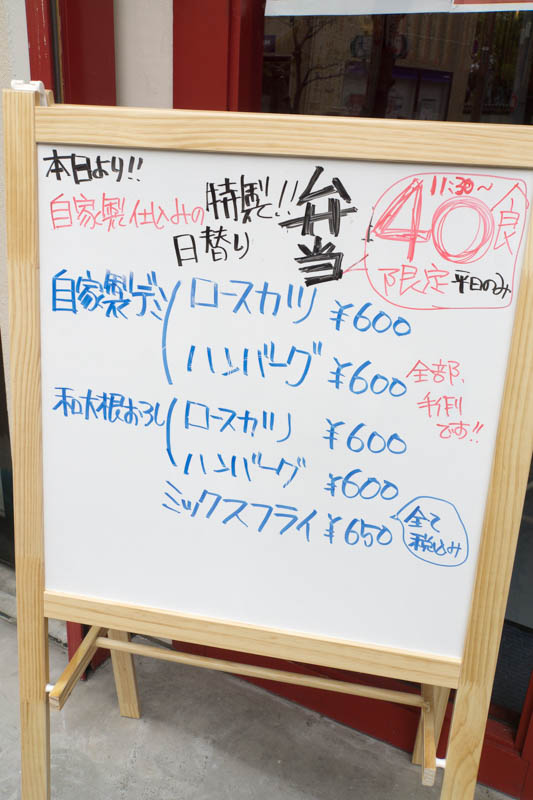 本日より!!
自家製仕込みの特製!!
日替り
弁当
11:30~
40食
限定 平日のみ
自家製デミ ロースカツ ¥600
ハンバーグ ¥600
全部、
手作り
です!!
和大根おろし ロースカツ ¥600
ハンバーグ ¥600
ミックスフライ ¥650
全て
税込み